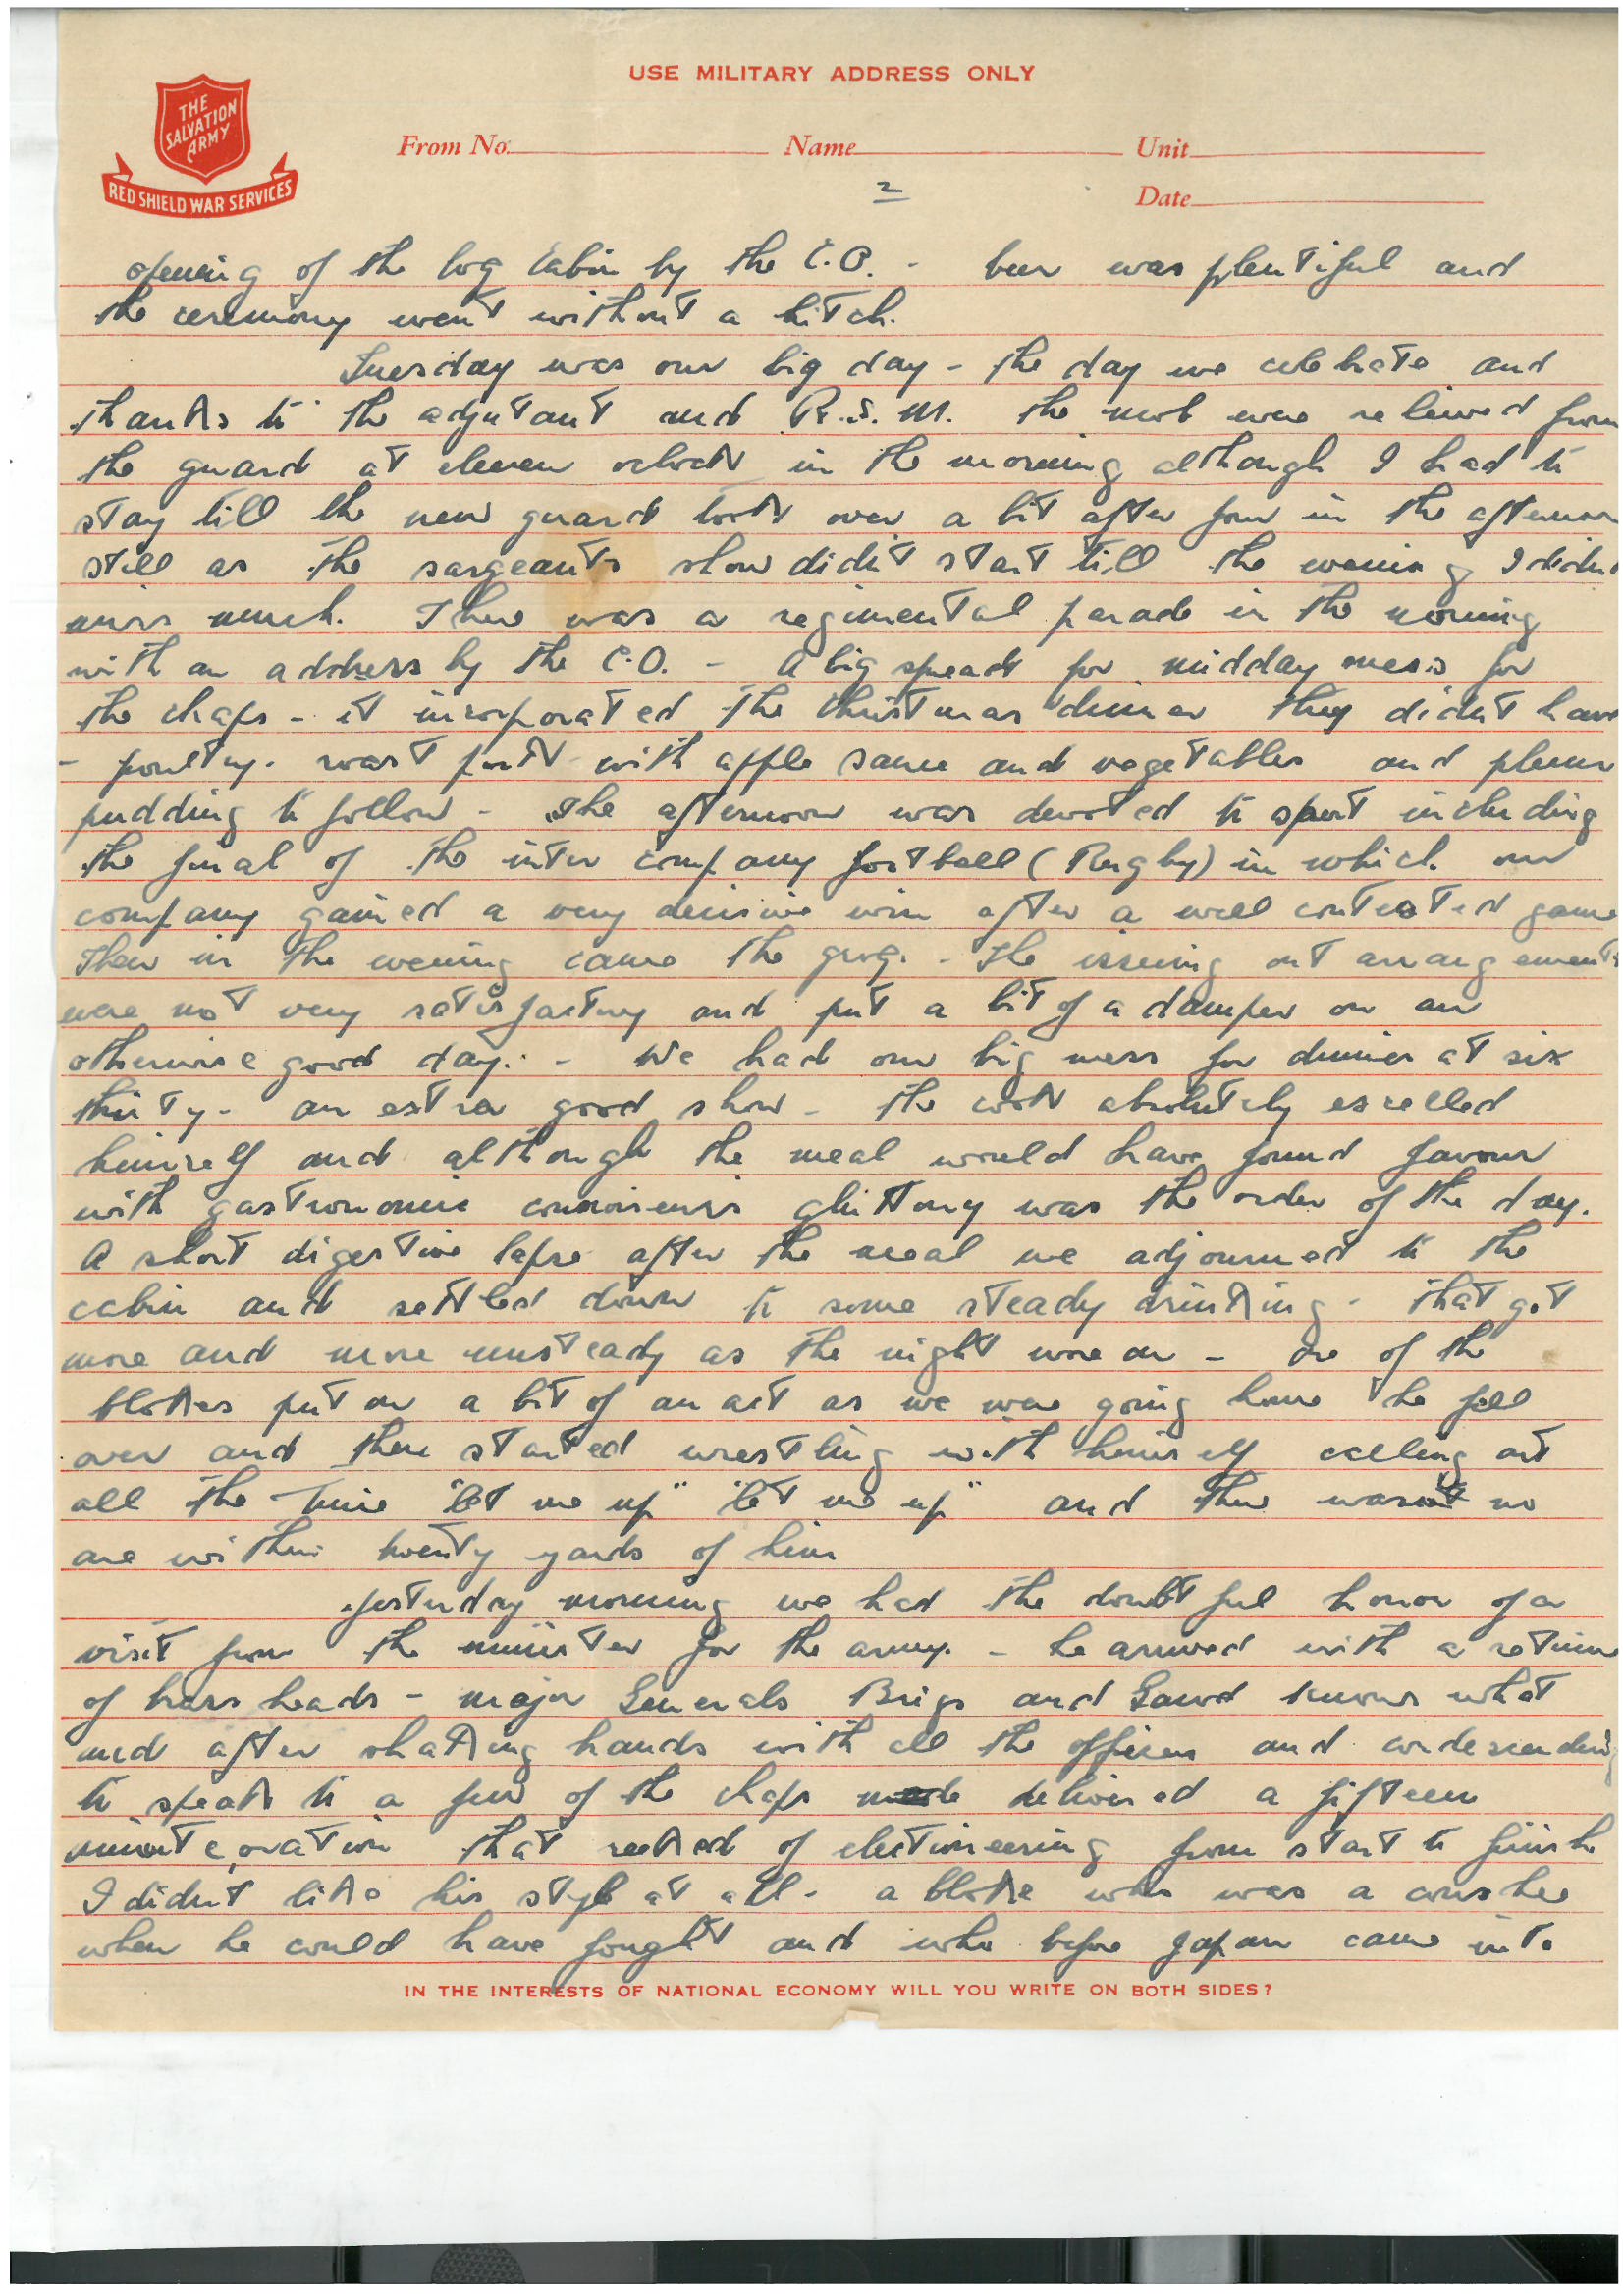 USE MILITARY ADDRESS ONLY
THE
SALVATION
ARMY
RED SHIELD WAR SERVICES
From No. Name Unit
2
Date
opening of the log cabin by the C.O. - beer was plentiful and
the ceremony went without a hitch.
Tuesday was our big day - the day we celebrate and
thanks to the adjutant and R.S.M. the mob were relieved from
the guard at eleven oclock in the morning although I had to
stay till the new guard took over a bit after four in the afternoon
still as the sargeants show didn't start till the evening I didn't
miss much. There was a regimental parade in the morning
with an address by the C.O. - A big spread for midday mess for
the chaps - it incorporated the Christmas dinner they didn't have
- poultry. roast pork with apple sauce and vegetables and plum
pudding to follow - The afternoon was devoted to sport including
the final of the inter company football (Rugby) in which our
company gained a very decisive win after a well contested game
Then in the evening came the grog. - The issuing out arrangements
were not very satisfactory and put a bit of a damper on an
otherwise good day. - We had our big mess for dinner at six
thirty - an extra good show - the cook absolutely excelled
himself and although the meal would have found favour
with gastronomic connoiseurs gluttony was the order of the day.
A short digestive lapse after the meal we adjourned to the
cabin and settled down to some steady drinking - that got
more and more unsteady as the night wore on - one of the
blokes put on a bit of an act as we were going home he fell
over and then started wrestling with himself calling out
all the time "let me up" "let me up" and there wasn't no
one within twenty yards of him
Yesterday morning we had the doubtful honor of a
visit from the minister for the army - he arrived with a retinue
of brass heads - major Generals Brigs and Gawd knows what
and after shaking hands with all the officers and condescending
to speak to a few of the chaps delivered a fifteen
minute oration that reeked of electioneering from start to finish
I didn't like his style at all - a bloke who was a conshee
when he could have fought and who before Japan came into
IN THE INTERESTS OF NATIONAL ECONOMY WILL YOU WRITE ON BOTH SIDES?